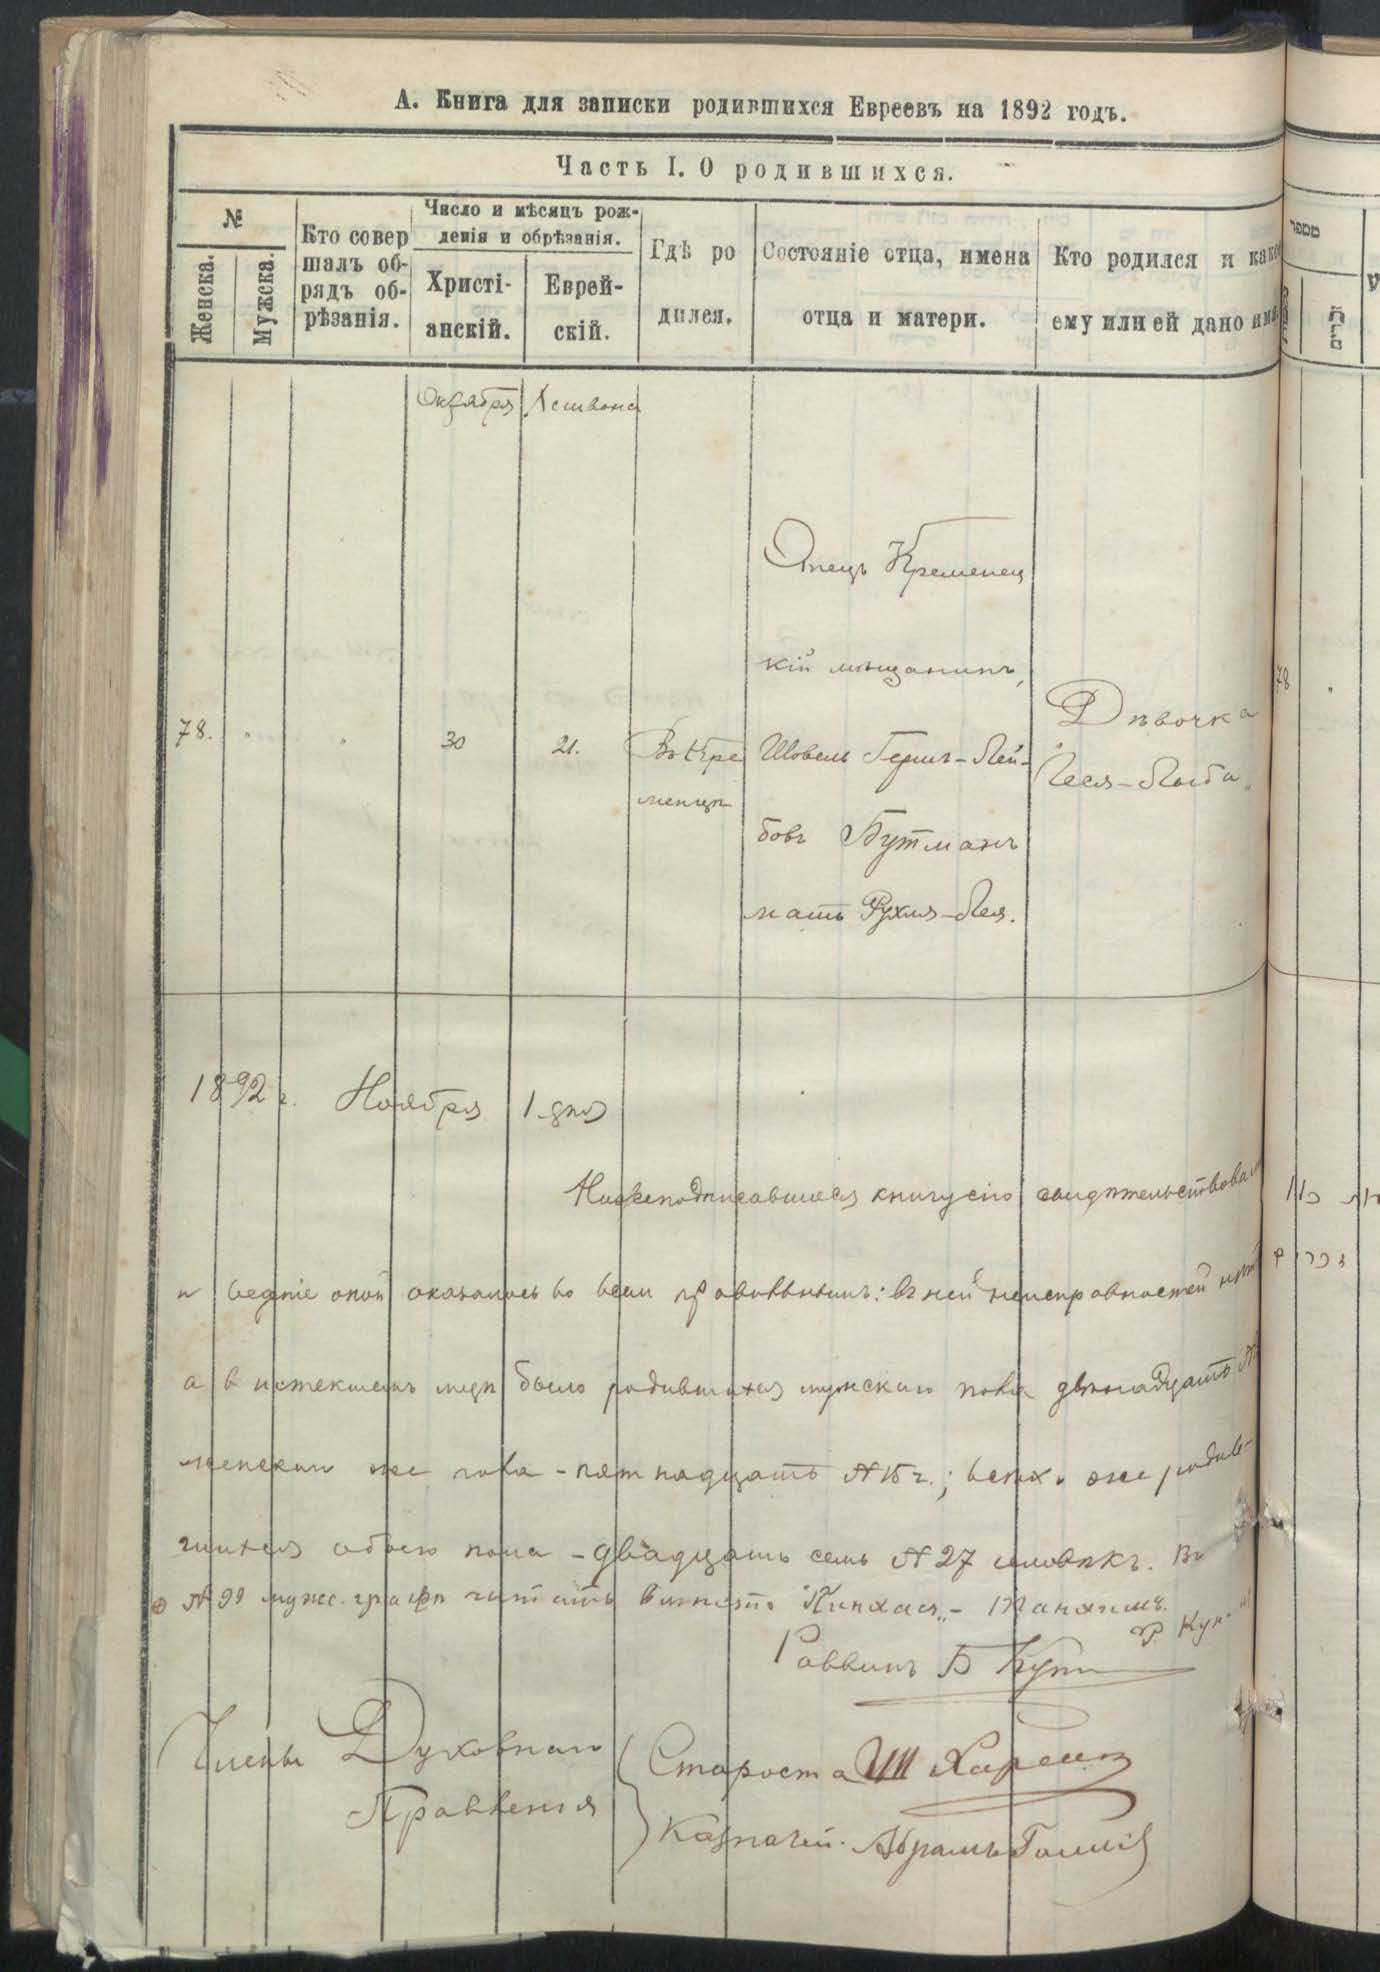 А. Книга для записки родившихся Евреевъ на 1892 годъ.
Часть I. О родившихся.
№
Женска.
Мужска.
Кто совер
шалъ об-
рядъ об-
рѣзанія.
Число и мѣсяцъ рож-
денія и обрѣзанія.
Христі-
анскій.
Еврей-
скій.
Гдѣ ро
дился.
Состояніе отца, имена
отца и матери.
Кто родился и какое
ему или ей дано имя
Октября
Хешвона
78.
"
"
30
21.
Въ Кре
менцѣ
Отецъ Кременец
кій мѣщанинъ,
Шовель Гершъ-Лей-
бовъ Бутманъ
мать Рухля-Лея.
Дѣвочка
"Песя-Лыба"
1892 г. Ноября 1 дня
Нижеподписавшиеся книгу сію свидѣтельствовали
и веденіе оной оказалось во всем правильнымъ: въ ней неисправностей нѣтъ
а в истекшемъ мцѣ было родившихся мужскаго пола двѣнадцать
женскаго же пола - пятнадцать № 15 ч.; всѣхъ же родив-
шихся обоего пола - двадцать семь № 27 человѣкъ. Въ
№ 99 мужс. графѣ читать вмѣсто "Пинхас" -
Раввинъ Б Кун
Члены Духовнаго
Правленія
Староста Ш
Казначей Абрамъ
מספר
זכרים
78